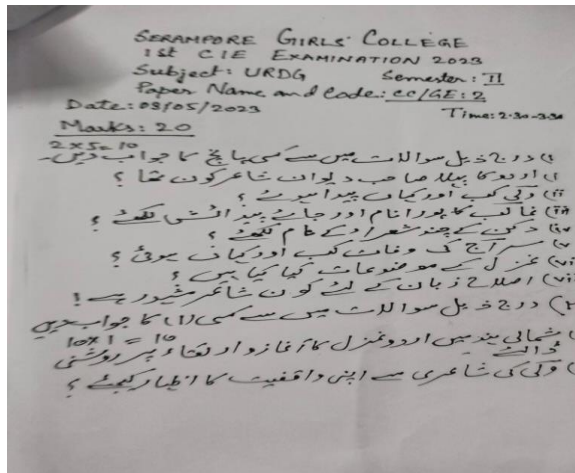 SERAMPORE GIRLS' COLLEGE
1st CIE EXAMINATION 2023
Subject: URDG Semester: II
Paper Name and Code: CC/GE: 2
Date: 08/05/2023
Time: 2:30-3:30
Marks: 20
2×5=10
۱) درج ذیل سوالات میں سے کسی پانچ کا جواب دیں۔
i) اردو کا پہلا صاحب دیوان شاعر کون تھا ؟
ii) ولی کب اور کہاں پیدا ہوئے ؟
iii) غالب کا پورا نام اور جائے پیدائش لکھئے ؟
iv) دکن کے چند شعراء کے نام لکھئے ؟
v) سراج کی وفات کب اور کہاں ہوئی ؟
vi) غزل کے موضوعات کیا کیا ہیں ؟
vii) اصلاح زبان کے لئے کون شاعر مشہور ہے !
۲) درج ذیل سوالات میں سے کسی (1) کا جواب دیں
10×1=10
شمالی ہند میں اردو غزل کا آغاز و ارتقاء پر روشنی
ڈالئے
ولی کی شاعری سے اپنی واقفیت کا اظہار کیجئے ؟